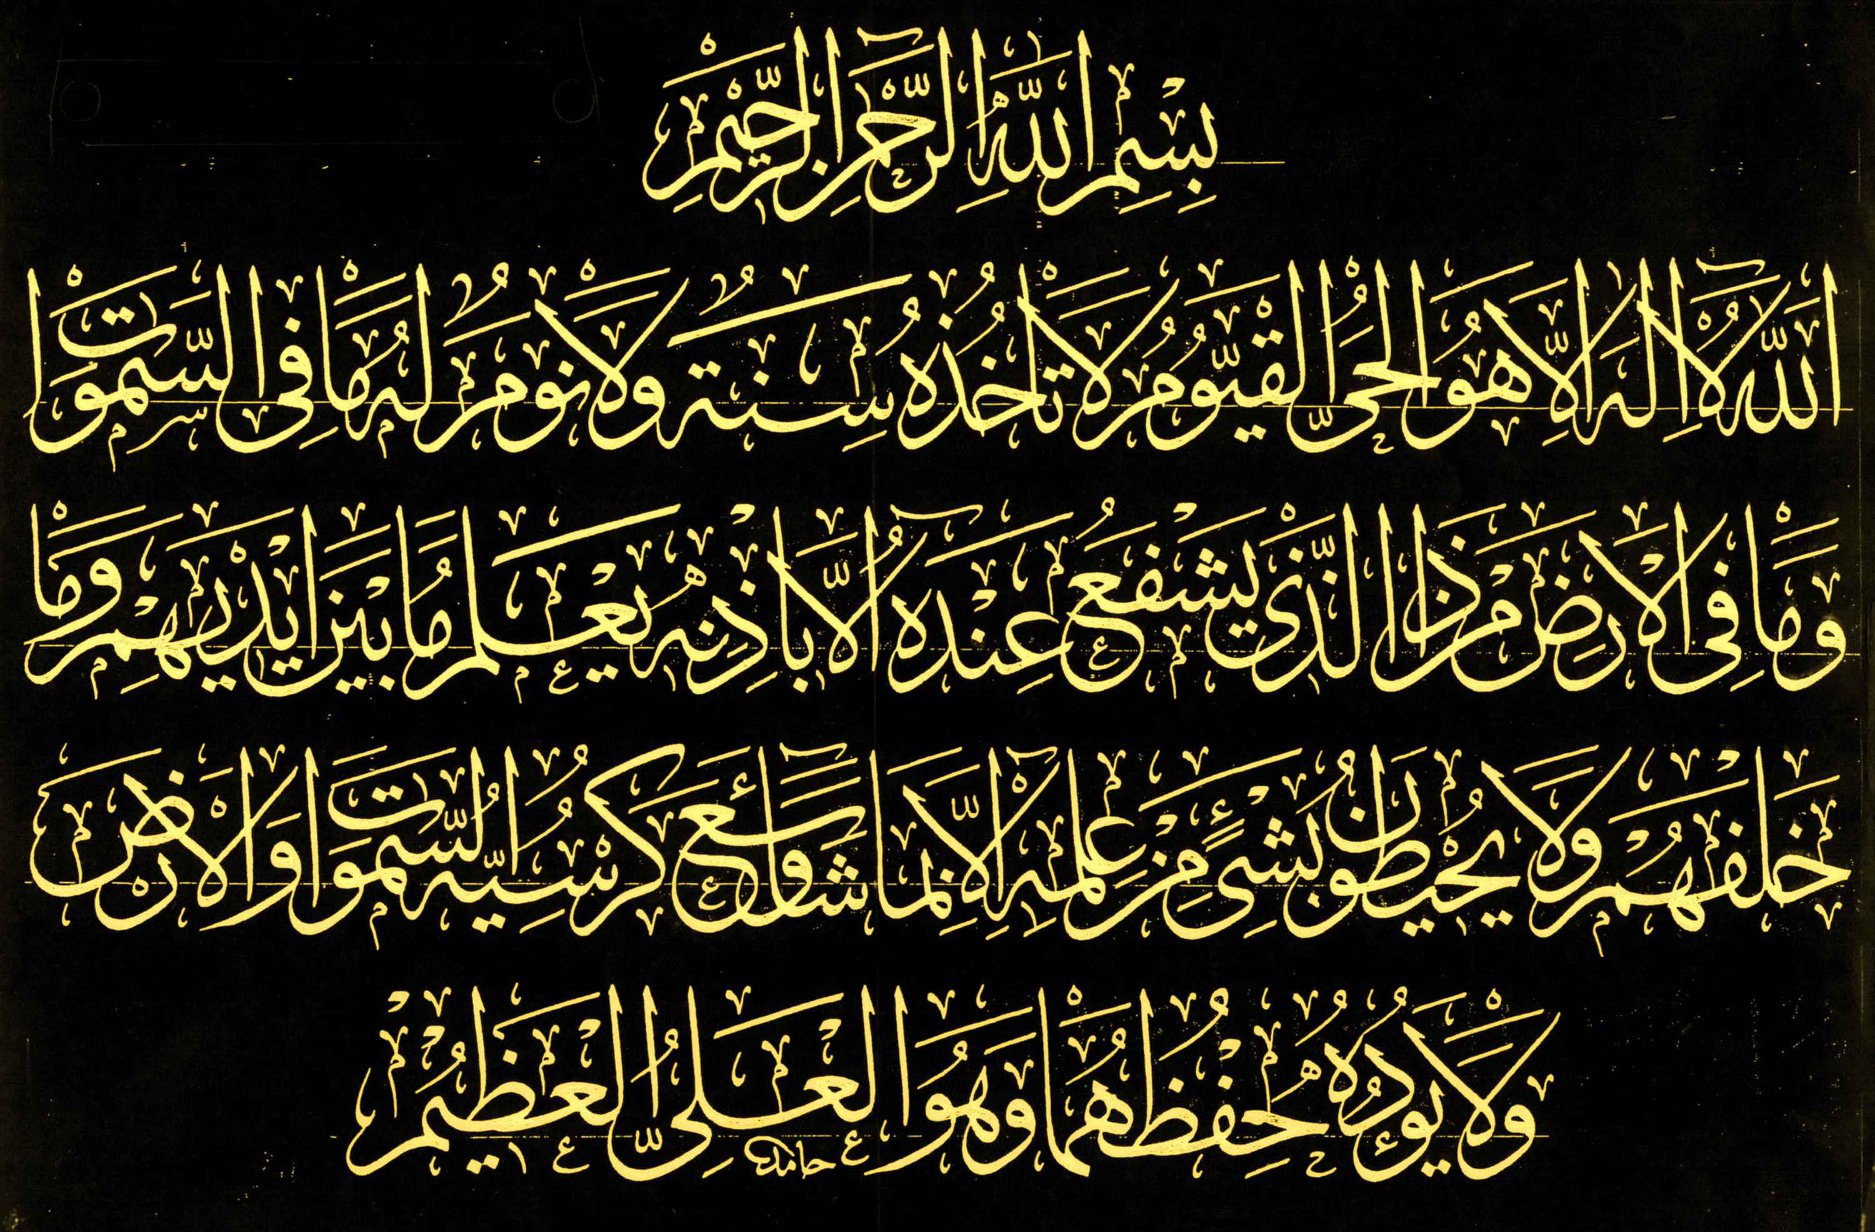 بِسْمِ اللَّهِ الرَّحْمٰنِ الرَّحِيمِ
اَللَّهُ لَا إِلٰهَ إِلَّا هُوَ الْحَيُّ الْقَيُّومُ لَا تَأْخُذُهُ سِنَةٌ وَلَا نَوْمٌ لَهُ مَا فِي السَّمٰوَاتِ
وَمَا فِي الْأَرْضِ مَنْ ذَا الَّذِي يَشْفَعُ عِنْدَهُ إِلَّا بِإِذْنِهِ يَعْلَمُ مَا بَيْنَ أَيْدِيهِمْ وَمَا
خَلْفَهُمْ وَلَا يُحِيطُونَ بِشَيْءٍ مِنْ عِلْمِهِ إِلَّا بِمَا شَاءَ وَسِعَ كُرْسِيُّهُ السَّمٰوَاتِ وَالْأَرْضَ
وَلَا يَؤُدُهُ حِفْظُهُمَا وَهُوَ الْعَلِيُّ الْعَظِيمُ
حامد